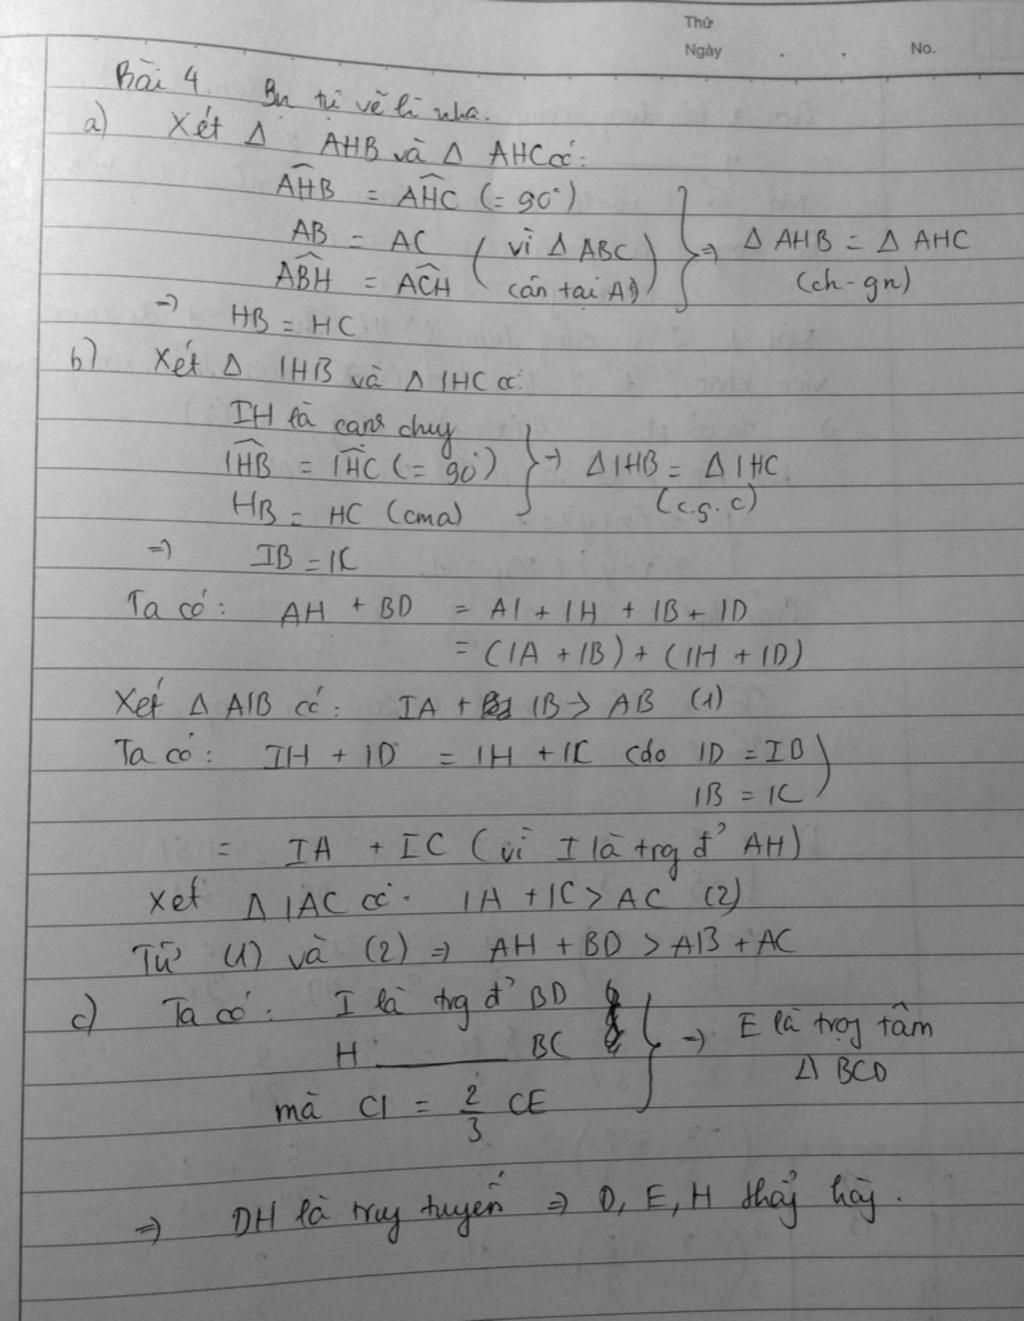 Thứ
Ngày . . No.
Bài 4 Bn tự vẽ h̀ nha.
a) Xét Δ AHB và Δ AHC có:
\widehat{AHB} = \widehat{AHC} (= 90°)
AB = AC (vì Δ ABC
\widehat{ABH} = \widehat{ACH} cân tại A) } ⇒ Δ AHB = Δ AHC
(ch - gn)
⇒ HB = HC
b) Xét Δ IHB và Δ IHC có:
IH là cạnh chung
\widehat{IHB} = \widehat{IHC} (= 90°) } ⇒ Δ IHB = Δ IHC
HB = HC (cma) (c.g.c)
⇒ IB = IC
Ta có: AH + BD = AI + IH + IB + ID
= (IA + IB) + (IH + ID)
Xét Δ AIB có: IA + IB > AB (1)
Ta có: IH + ID = IH + IC (do ID = IB
IB = IC)
= IA + IC (vì I là trg đ' AH)
Xét Δ IAC có: IA + IC > AC (2)
Từ (1) và (2) ⇒ AH + BD > AB + AC
c) Ta có: I là trg đ' BD
H ——— BC } ⇒ E là trọng tâm
Δ BCD
mà CI = 2/3 CE
⇒ DH là trung tuyến ⇒ D, E, H thẳng hàng.